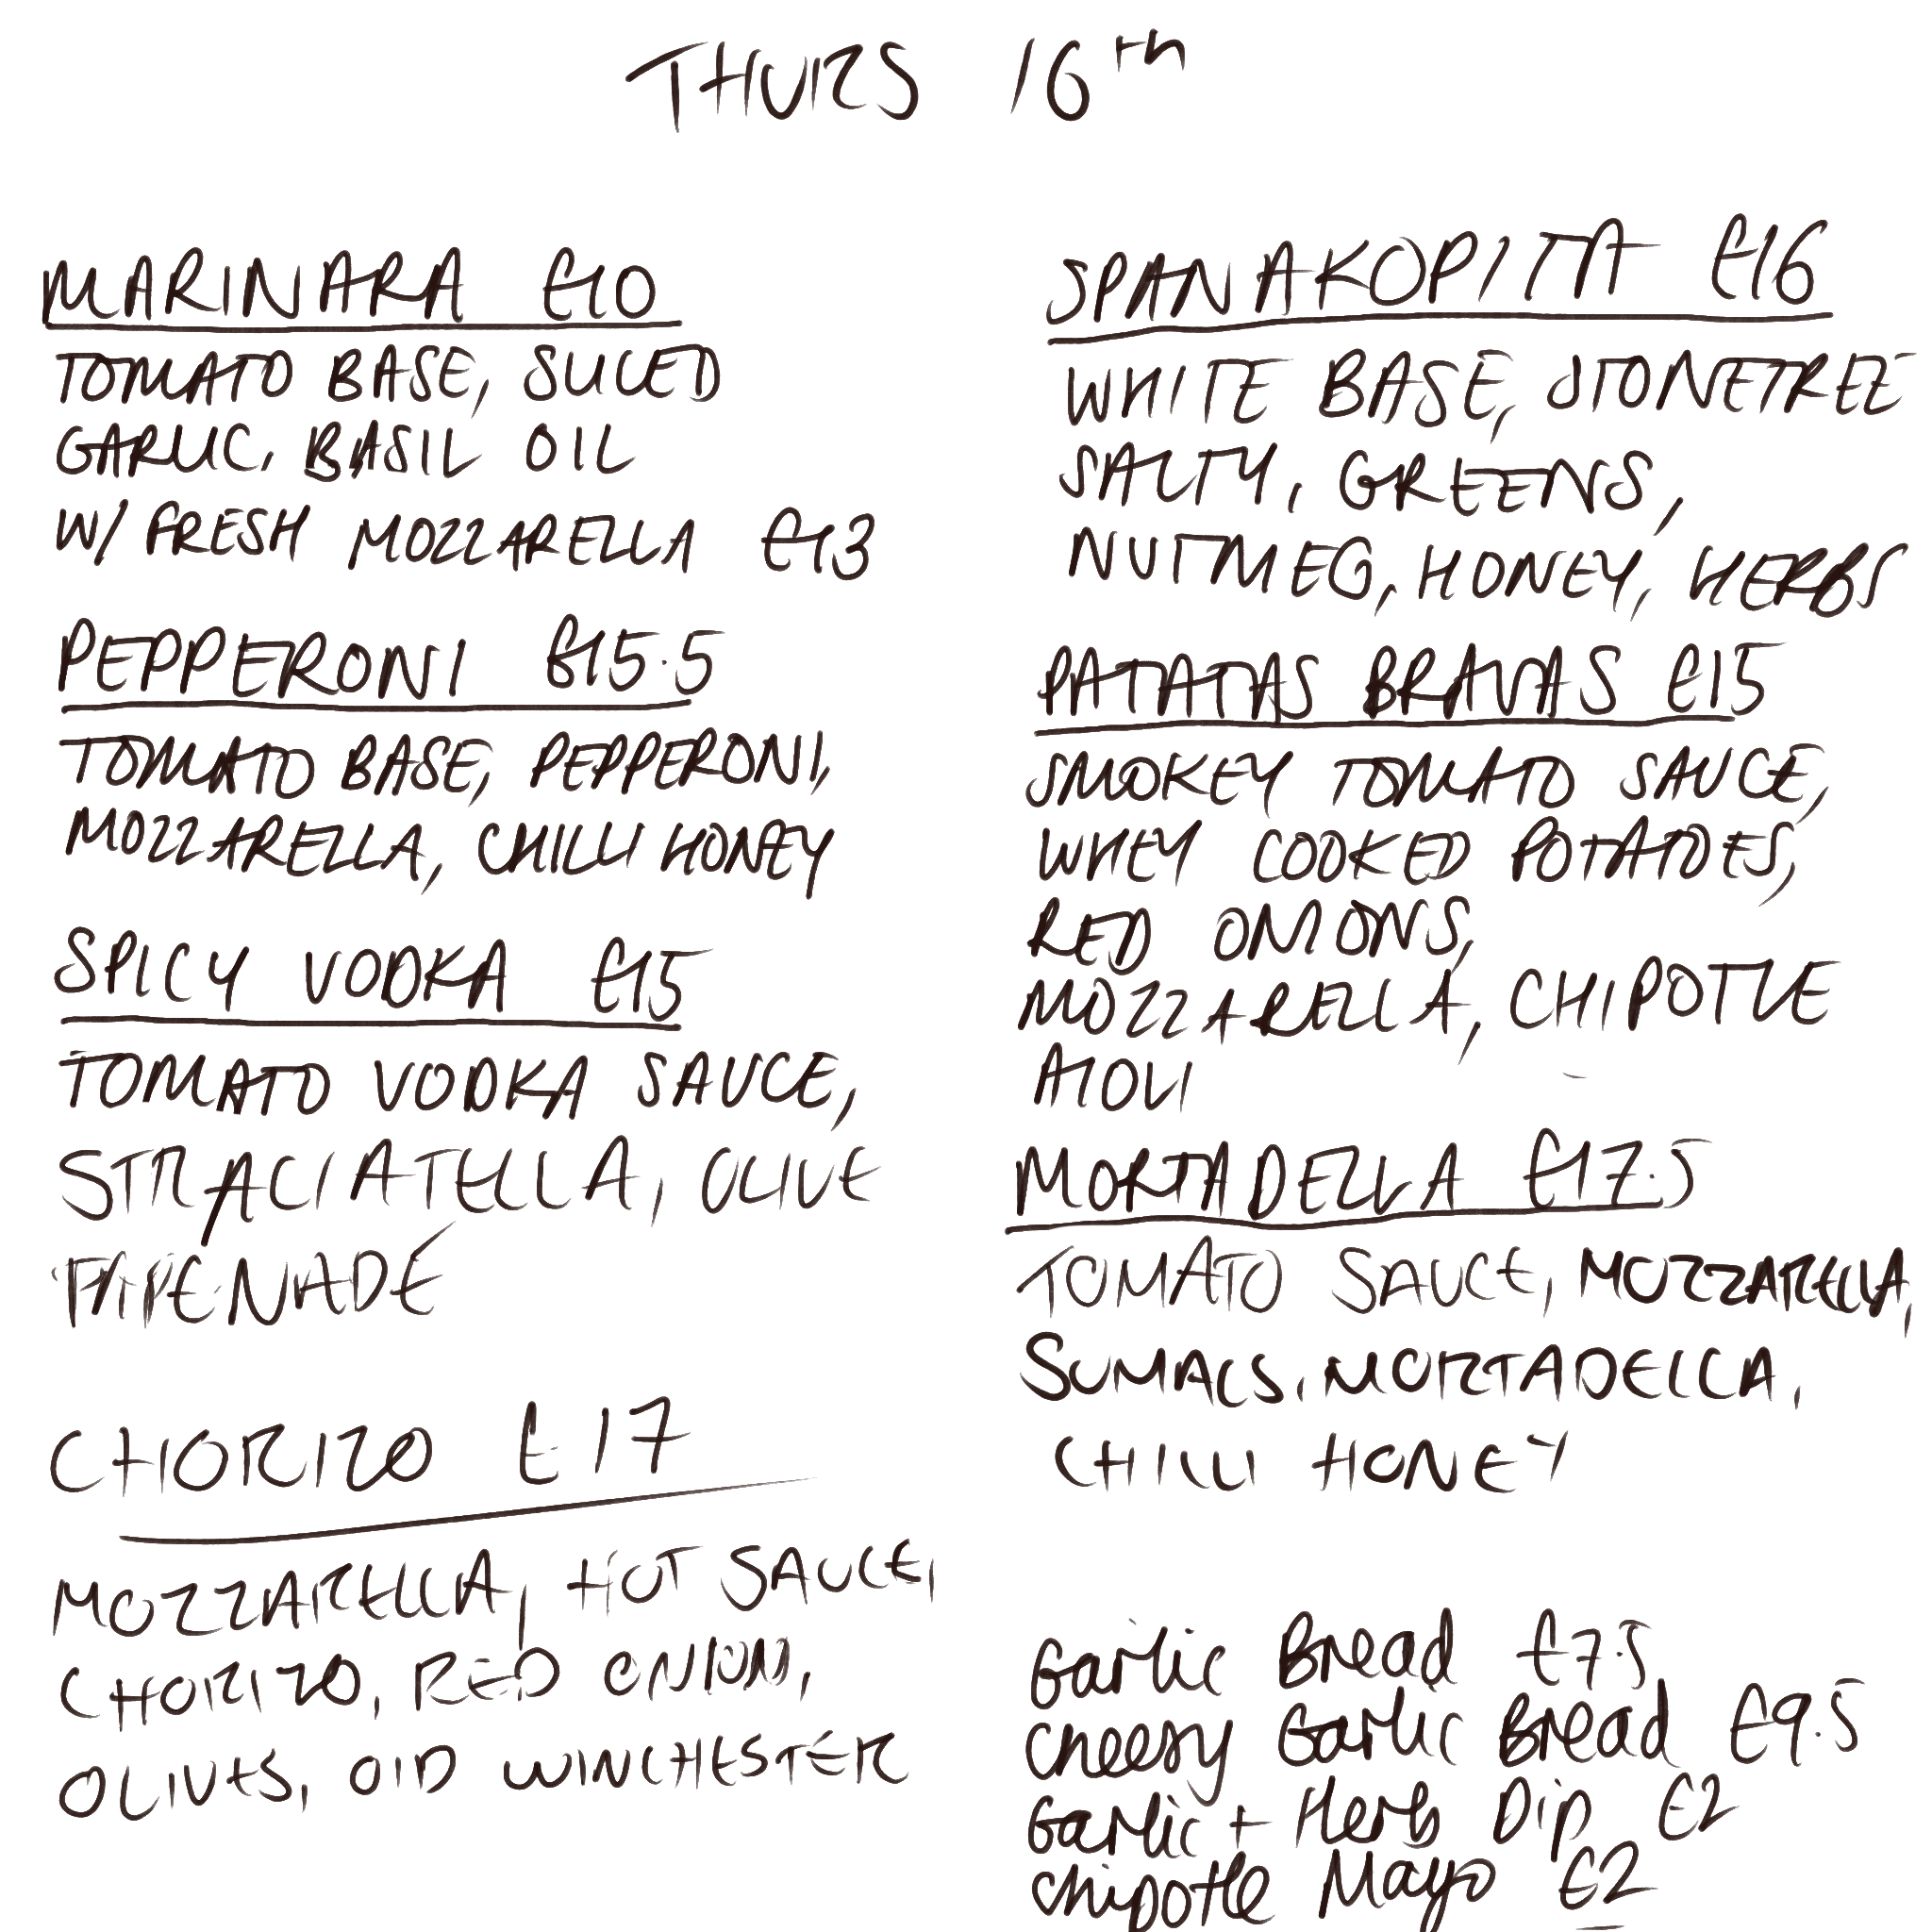 THURS 16th
MARINARA £10
TOMATO BASE, SLICED
GARLIC, BASIL OIL
W/ FRESH MOZZARELLA £13
PEPPERONI £15.5
TOMATO BASE, PEPPERONI,
MOZZARELLA, CHILLI HONEY
SPICY VODKA £15
TOMATO VODKA SAUCE,
STRACIATELLA, OLIVE
TAPENADE
CHORIZO £17
MOZZARELLA, HOT SAUCE,
CHORIZO, RED ONION,
OLIVES, OLD WINCHESTER
SPANAKOPITTA £16
WHITE BASE, STONETREE
SALTY, GREENS,
NUTMEG, HONEY, HERBS
PATATAS BRAVAS £15
SMOKEY TOMATO SAUCE,
WHEY COOKED POTATOES,
RED ONIONS,
MOZZARELLA, CHIPOTLE
AIOLI
MORTADELLA £17.5
TOMATO SAUCE, MOZZARELLA,
SUMACS, MORTADELLA,
CHILLI HONEY
Garlic Bread £7.5
Cheesy Garlic Bread £9.5
Garlic + Herb Dip £2
Chipotle Mayo £2